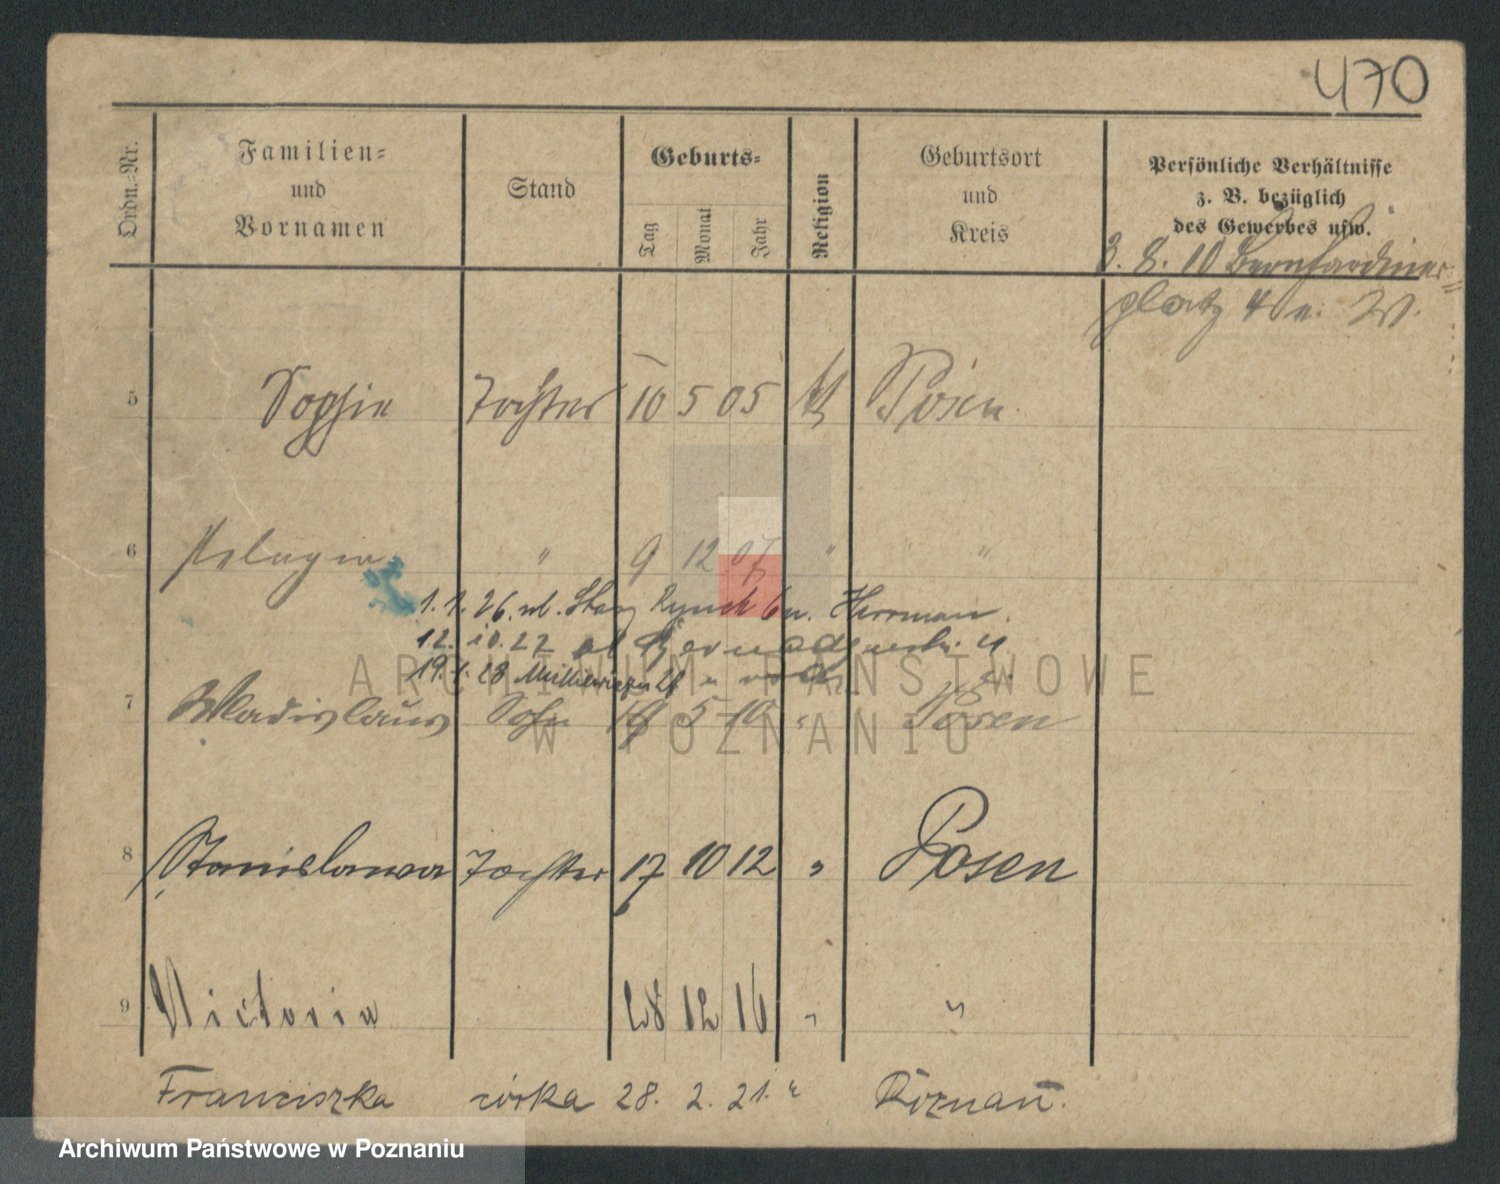 470
Ordn.=Nr.
Familien=
und
Vornamen
Stand
Geburts=
Tag
Monat
Jahr
Religion
Geburtsort
und
Kreis
Persönliche Verhältnisse
z. B. bezüglich
des Gewerbes usw.
3. 8. 10 Bernhardiner=
platz 4 W.
5 Sophie Tochter 10 5 05 Posen
6 Pelagia " 9 12 07 " " "
1. 1. 26. Rynek Herrman.
12. 10. 27
19. 1. 28
7 Wladislaus Sohn 19 5 10 " Posen
8 Stanislawa Tochter 17 10 12 " Posen
9 Victoria 28 12 16 " "
Franciszka córka 28. 2. 21. " Poznań.
ARCHIWUM PAŃSTWOWE
W POZNANIU
Archiwum Państwowe w Poznaniu